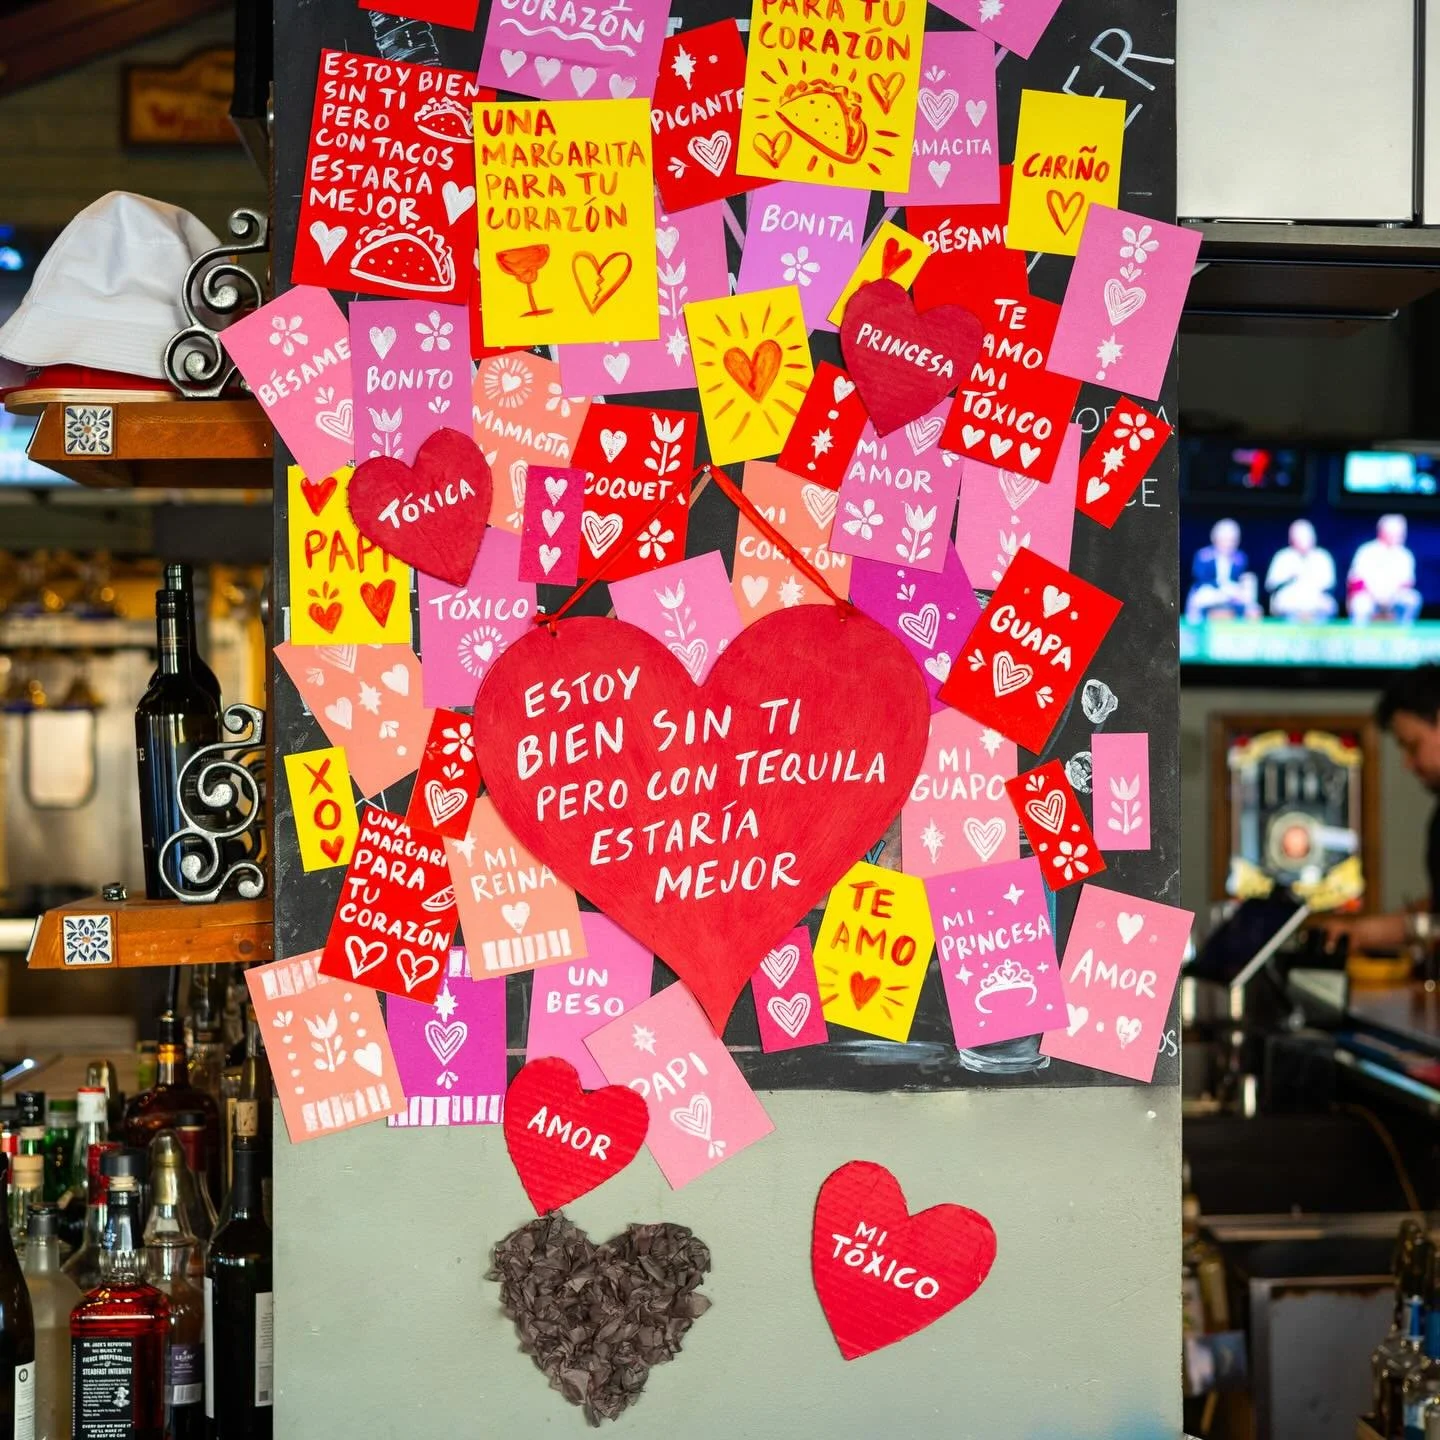 CORAZÓN
PARA TU
CORAZÓN
ESTOY BIEN
SIN TI
PERO
CON TACOS
ESTARÍA
MEJOR
UNA
MARGARITA
PARA TU
CORAZÓN
PICANTE
AMACITA
CARIÑO
BONITA
BÉSAM
ER
PRINCESA
TE
AMO
MI
TÓXICO
BÉSAME
BONITO
MAMACITA
COQUET
MI
AMOR
TÓXICA
PAPI
MI
CORAZÓN
TÓXICO
GUAPA
ESTOY
BIEN SIN TI
PERO CON TEQUILA
ESTARÍA
MEJOR
MI
GUAPO
XO
UNA
MARGARI
PARA
TU
CORAZÓN
MI
REINA
TE
AMO
MI
PRINCESA
AMOR
UN
BESO
PAPI
AMOR
MI
TÓXICO
FIERCE INDEPENDENCE
STEADFAST INTEGRITY